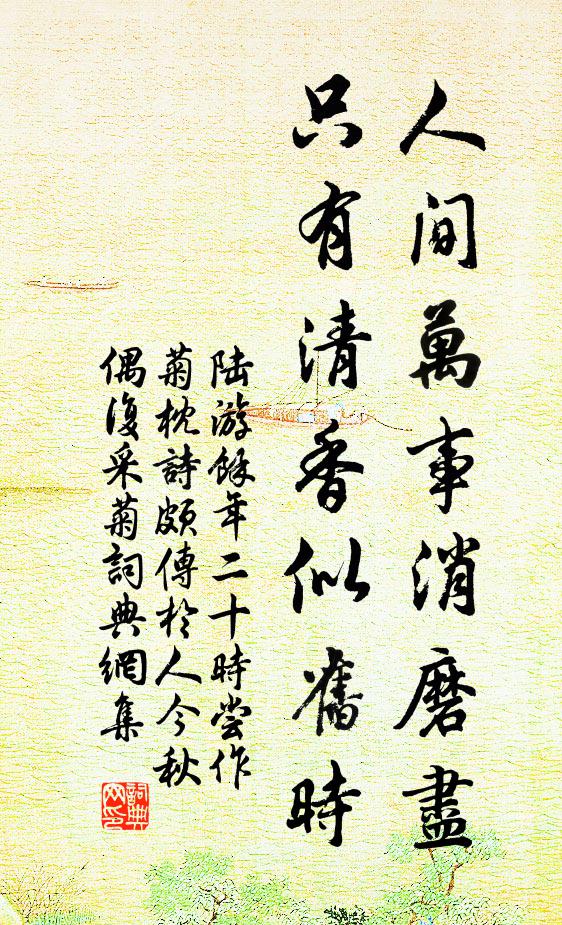 人间萬事消磨盡
只有清香似舊時
陆游餘年二十時尝作
菊枕詩颇傳於人今秋
偶復采菊詞典網集
詞典网印